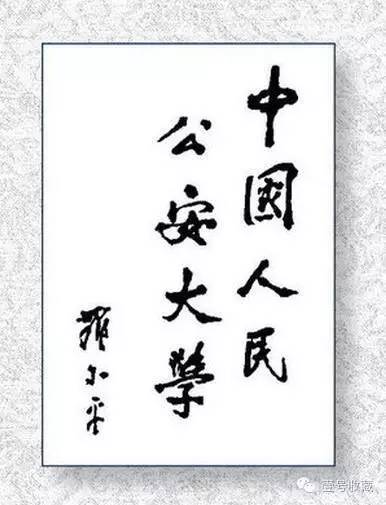 中國人民
公安大學
鄧小平
壹号收藏